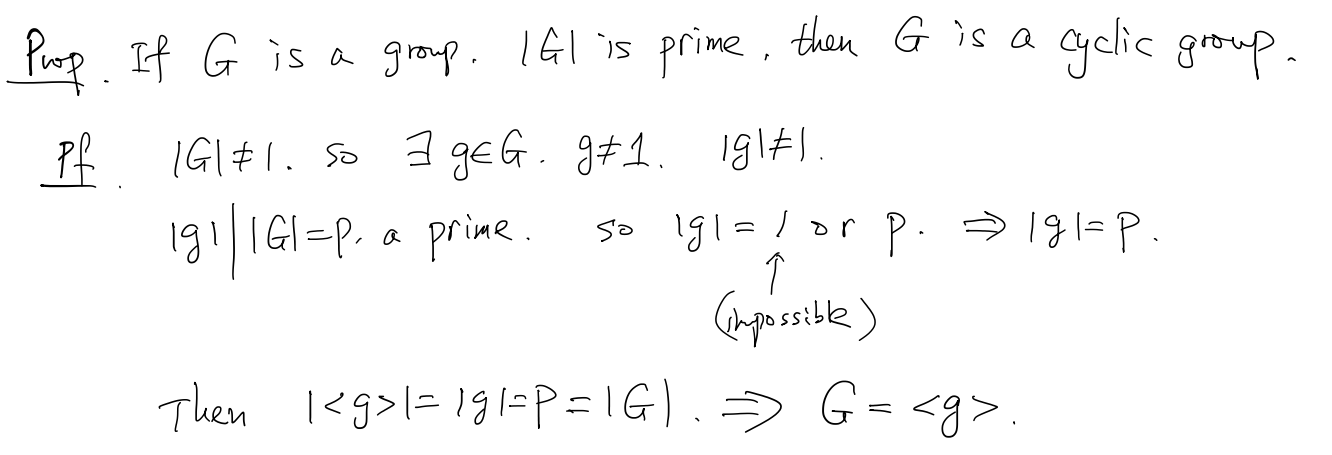 Prop. If G is a group. |G| is prime, then G is a cyclic group.
Pf. |G|≠1. so ∃ g∈G. g≠1. |g|≠1.
|g| | |G|=p, a prime. so |g| = 1 or p. ⇒ |g|=p.
↑
(impossible)
Then |<g>|=|g|=p=|G|. ⇒ G=<g>.